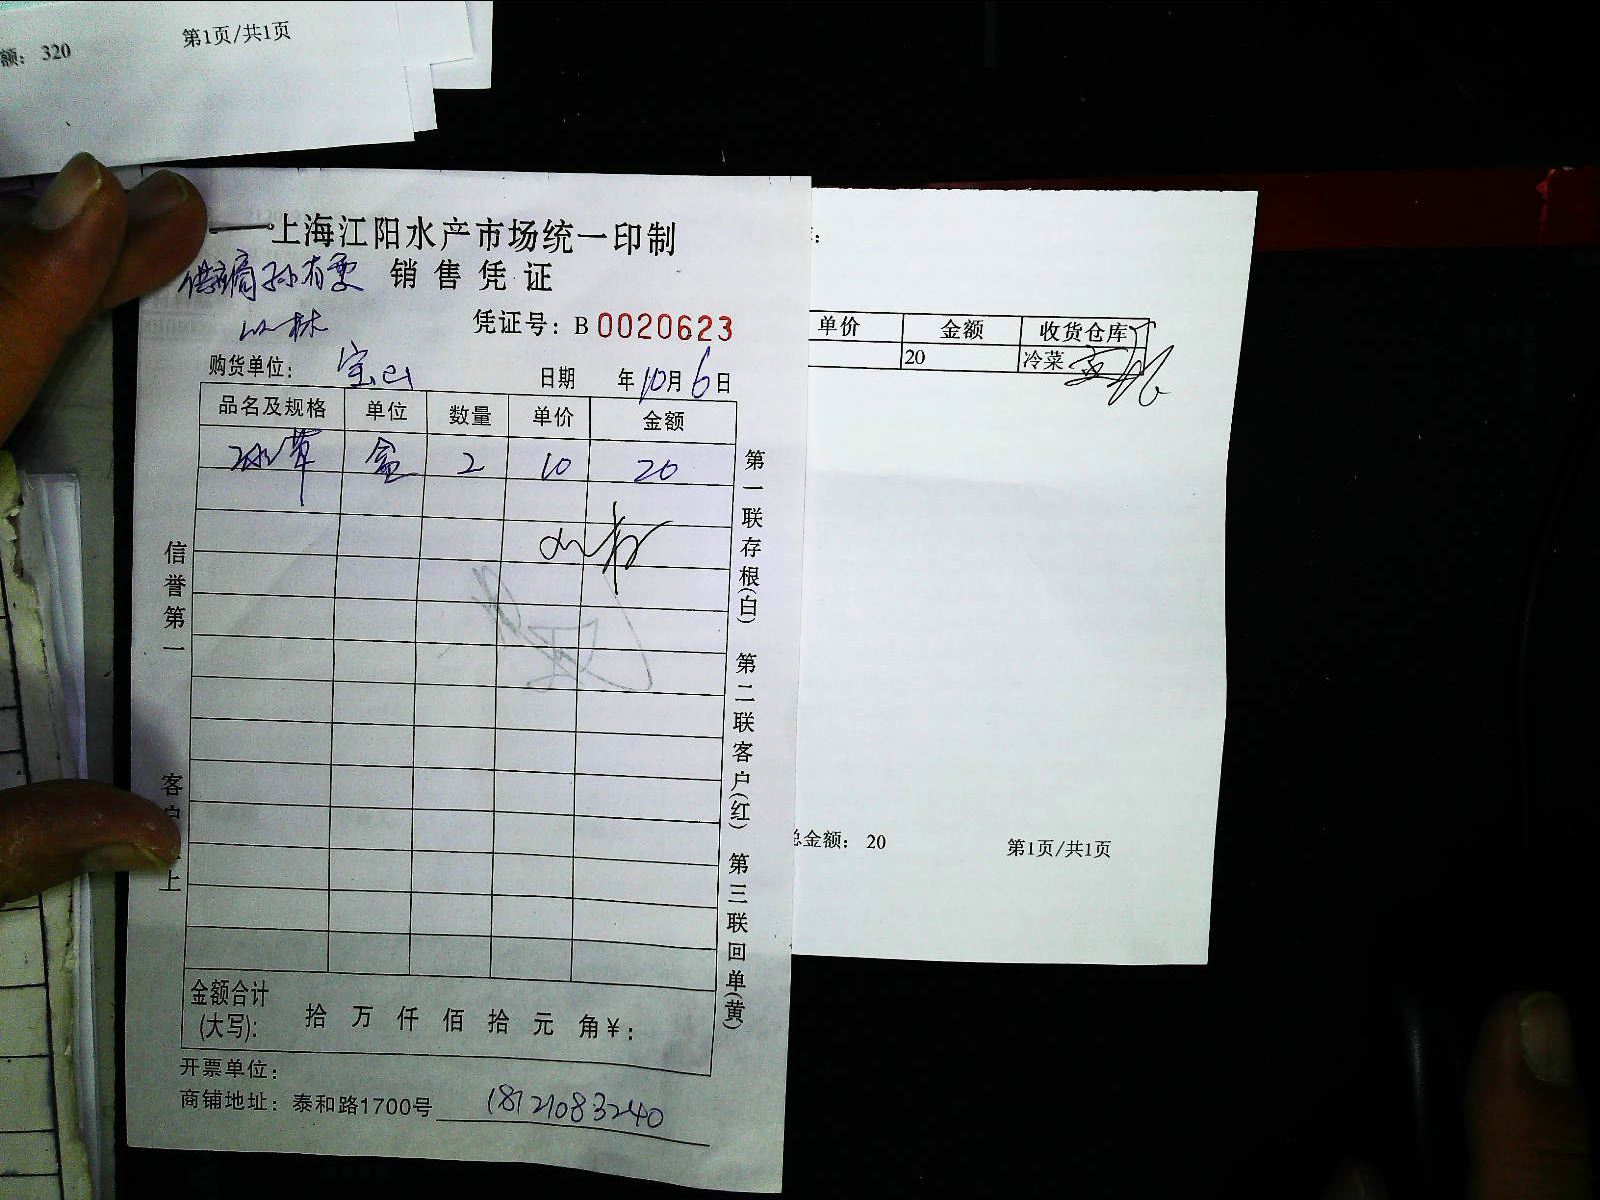 额: 320
第1页/共1页
上海江阳水产市场统一印制
供应商孙有要 销售凭证
凭证号: B 0020623
购货单位: 宝山
日期 年10月6日
品名及规格 单位 数量 单价 金额
冰草 盒 2 10 20
信誉第一
客户 上
第一联存根(白) 第二联客户(红) 第三联回单(黄)
金额合计
(大写): 拾万仟佰拾元角¥:
开票单位:
商铺地址: 泰和路1700号 18121083240
单价 金额 收货仓库
20 冷菜
总金额: 20
第1页/共1页